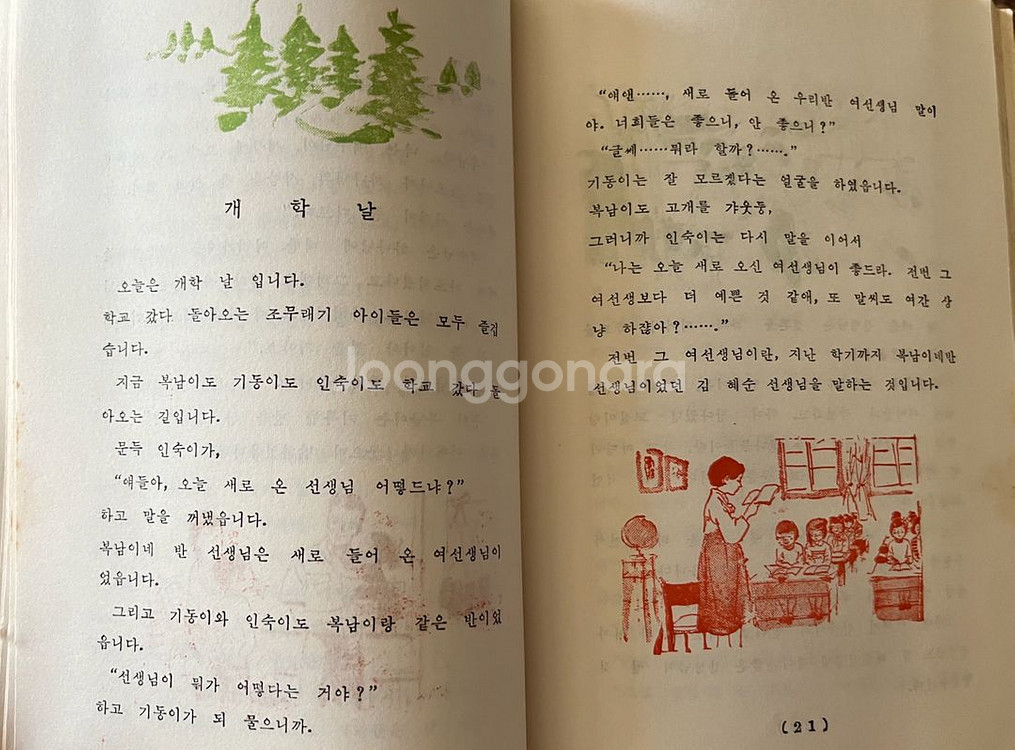 개 학 날
오늘은 개학 날 입니다.
학교 갔다 돌아오는 조무래기 아이들은 모두 즐겁
습니다.
지금 복남이도 기동이도 인숙이도 학교 갔다 돌
아오는 길입니다.
문득 인숙이가,
“얘들아, 오늘 새로 온 선생님 어떻드냐?”
하고 말을 꺼냈읍니다.
복남이네 반 선생님은 새로 들어 온 여선생님이
었읍니다.
그리고 기동이와 인숙이도 복남이랑 같은 반이었
읍니다.
“선생님이 뭐가 어떻다는 거야?”
하고 기동이가 되 물으니까.
“얘앤……, 새로 들어 온 우리반 여선생님 말이
야. 너희들은 좋으니, 안 좋으니?”
“글쎄……뭐라 할까?…….”
기동이는 잘 모르겠다는 얼굴을 하였읍니다.
복남이도 고개를 갸웃둥,
그러니까 인숙이는 다시 말을 이어서
“나는 오늘 새로 오신 여선생님이 좋드라. 전번 그
여선생보다 더 예쁜 것 같애, 또 말씨도 여간 상
냥 하잖아?…….”
전번 그 여선생님이란, 지난 학기까지 복남이네반
선생님이었던 김 혜순 선생님을 말하는 것입니다.
loonggonara
(21)